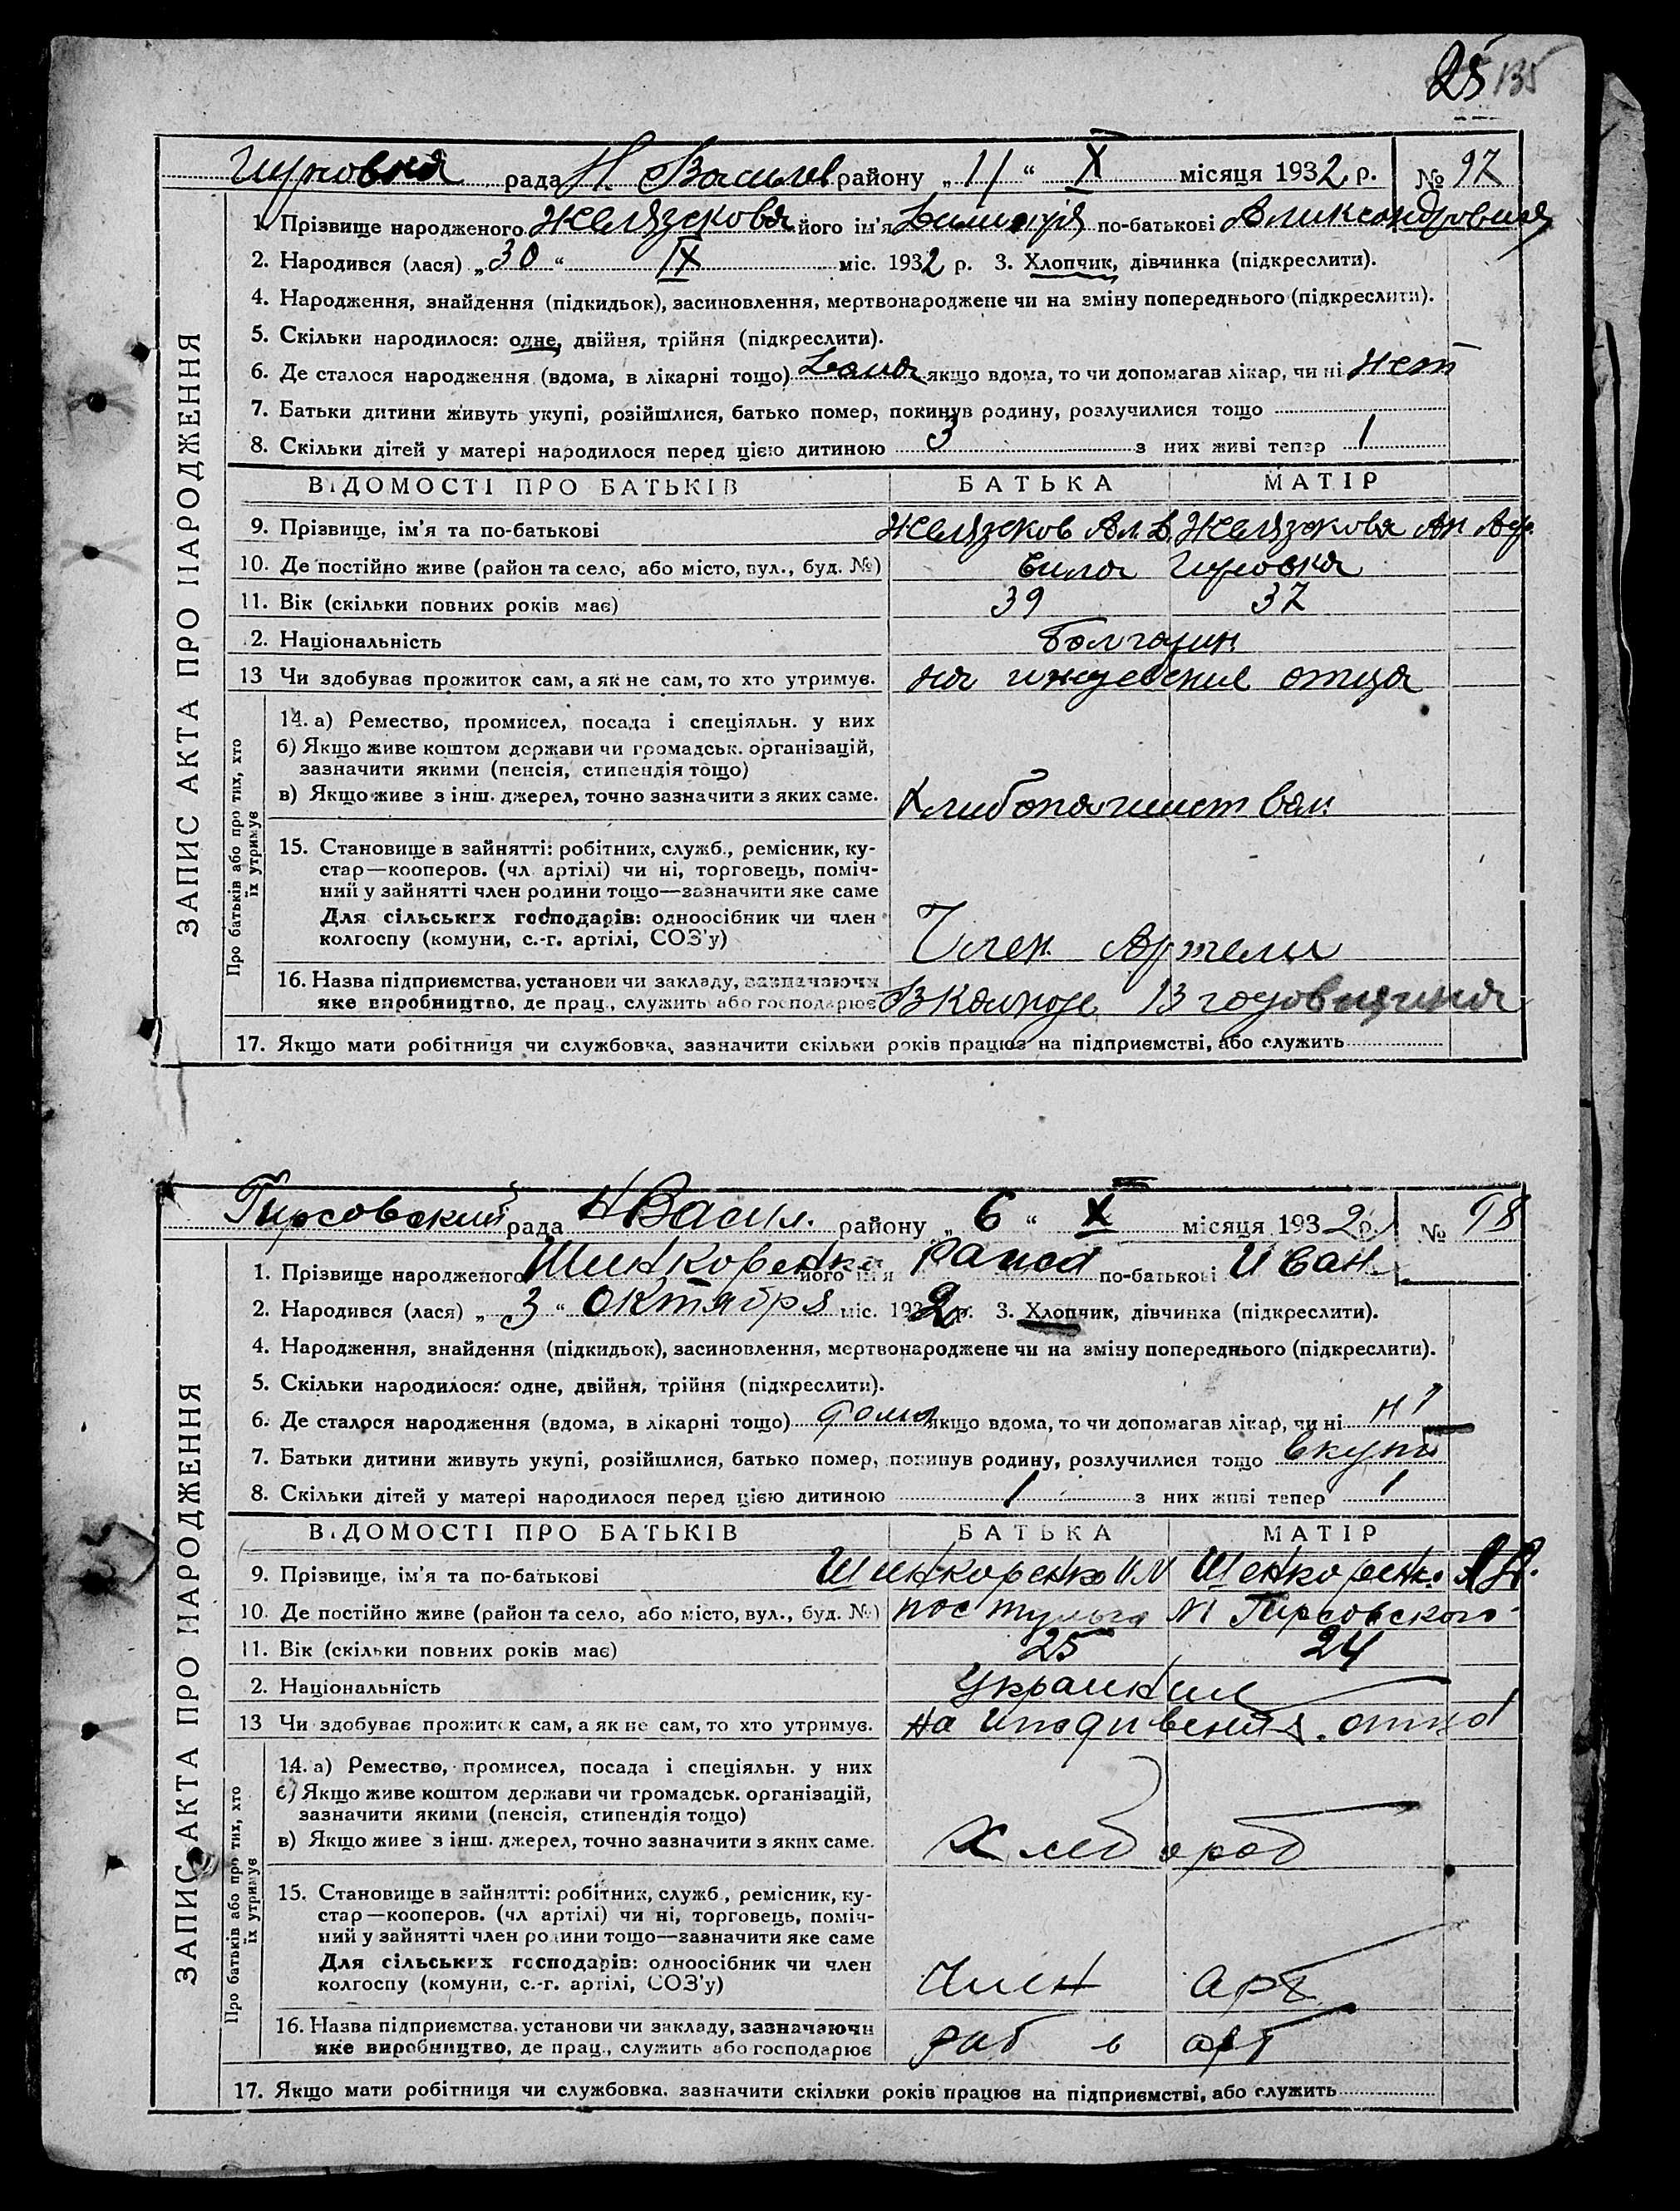 25 135
рада Н. Васильев району „ 11 “ X місяця 1932 р. № 97
1. Прізвище народженого Желязскова його ім'я по-батькові Александровна
2. Народився (лася) „ 30 “ IX міс. 1932 р. 3. Хлопчик, дівчинка (підкреслити).
4. Народження, знайдення (підкидьок), засиновлення, мертвонароджене чи на зміну попереднього (підкреслити).
5. Скільки народилося: одне, двійня, трійня (підкреслити).
6. Де сталося народження (вдома, в лікарні тощо) Дома якщо вдома, то чи допомагав лікар, чи ні нет
7. Батьки дитини живуть укупі, розійшлися, батько помер, покинув родину, розлучилися тощо
8. Скільки дітей у матері народилося перед цією дитиною 3 з них живі тепер 1
ВІДОМОСТІ ПРО БАТЬКІВ БАТЬКА МАТІР
9. Прізвище, ім'я та по-батькові Желязсков Ал. Д. Желязскова Ан
10. Де постійно живе (район та село, або місто, вул., буд. №)
11. Вік (скільки повних років має) 39 37
2. Національність Болгарин
13 Чи здобуває прожиток сам, а як не сам, то хто утримує. на отца
14. а) Ремество, промисел, посада і спеціяльн. у них
б) Якщо живе коштом держави чи громадськ. організацій,
зазначити якими (пенсія, стипендія тощо)
в) Якщо живе з інш. джерел, точно зазначити з яких саме.
15. Становище в зайнятті: робітник, служб., ремісник, ку-
стар—кооперов. (чл. артілі) чи ні, торговець, поміч-
ний у зайнятті член родини тощо—зазначити яке саме
Для сільських господарів: одноосібник чи член
колгоспу (комуни, с.-г. артілі, СОЗ'у) Член Артели
16. Назва підприємства, установи чи закладу, зазначаючи
яке виробництво, де прац., служить або господарює В колхозе 13 годовщина
17. Якщо мати робітниця чи службовка, зазначити скільки років працює на підприємстві, або служить
ЗАПИС АКТА ПРО НАРОДЖЕННЯ
Про батьків або про тих, хто
їх утримує
Гирсовский рада Н Васил. району „ 6 “ X місяця 1932 р. № 98
1. Прізвище народженого Шинкоренко його ім'я Раиса по-батькові Иван.
2. Народився (лася) „ 3 “ Октября міс. 1932 р. 3. Хлопчик, дівчинка (підкреслити).
4. Народження, знайдення (підкидьок), засиновлення, мертвонароджене чи на зміну попереднього (підкреслити).
5. Скільки народилося: одне, двійня, трійня (підкреслити).
6. Де сталося народження (вдома, в лікарні тощо) дома якщо вдома, то чи допомагав лікар, чи ні ні
7. Батьки дитини живуть укупі, розійшлися, батько помер, покинув родину, розлучилися тощо вкупі
8. Скільки дітей у матері народилося перед цією дитиною 1 з них живі тепер 1
ВІДОМОСТІ ПРО БАТЬКІВ БАТЬКА МАТІР
9. Прізвище, ім'я та по-батькові Шинкоренко И М Шенкоренко
10. Де постійно живе (район та село, або місто, вул., буд. №) пос №1 Гирсовского
11. Вік (скільки повних років має) 25 24
2. Національність Украинци
13 Чи здобуває прожиток сам, а як не сам, то хто утримує. на отца
14. а) Ремество, промисел, посада і спеціяльн. у них
б) Якщо живе коштом держави чи громадськ. організацій,
зазначити якими (пенсія, стипендія тощо)
в) Якщо живе з інш. джерел, точно зазначити з яких саме. Хлебороб
15. Становище в зайнятті: робітник, служб., ремісник, ку-
стар—кооперов. (чл артілі) чи ні, торговець, поміч-
ний у зайнятті член родини тощо—зазначити яке саме
Для сільських господарів: одноосібник чи член
колгоспу (комуни, с.-г. артілі, СОЗ'у) Член арт
16. Назва підприємства, установи чи закладу, зазначаючи
яке виробництво, де прац., служить або господарює раб в арт
17. Якщо мати робітниця чи службовка, зазначити скільки років працює на підприємстві, або служить
ЗАПИС АКТА ПРО НАРОДЖЕННЯ
Про батьків або про тих, хто
їх утримує